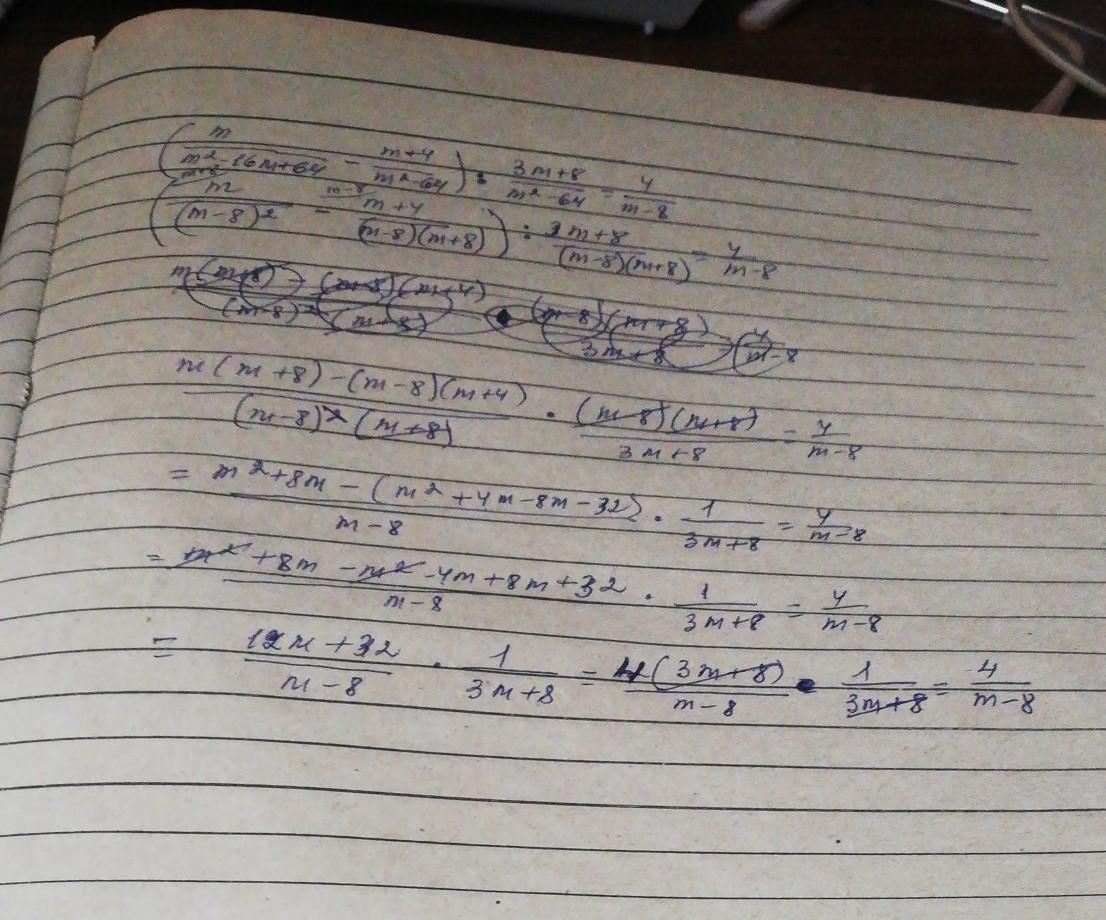 (m/(m²-16m+64) - (m+4)/(m²-64)) : (3m+8)/(m²-64) = 4/(m-8)
(m/(m-8)² - (m+4)/((m-8)(m+8))) : (3m+8)/((m-8)(m+8)) = 4/(m-8)
(m(m+8) - (m-8)(m+4))/((m-8)²(m+8)) · ((m-8)(m+8))/(3m+8) = 4/(m-8)
(m(m+8)-(m-8)(m+4))/((m-8)²(m+8)) · ((m-8)(m+8))/(3m+8) = 4/(m-8)
= (m²+8m-(m²+4m-8m-32))/(m-8) · 1/(3m+8) = 4/(m-8)
= (m²+8m-m²-4m+8m+32)/(m-8) · 1/(3m+8) = 4/(m-8)
= (12m+32)/(m-8) · 1/(3m+8) = (4(3m+8))/(m-8) · 1/(3m+8) = 4/(m-8)